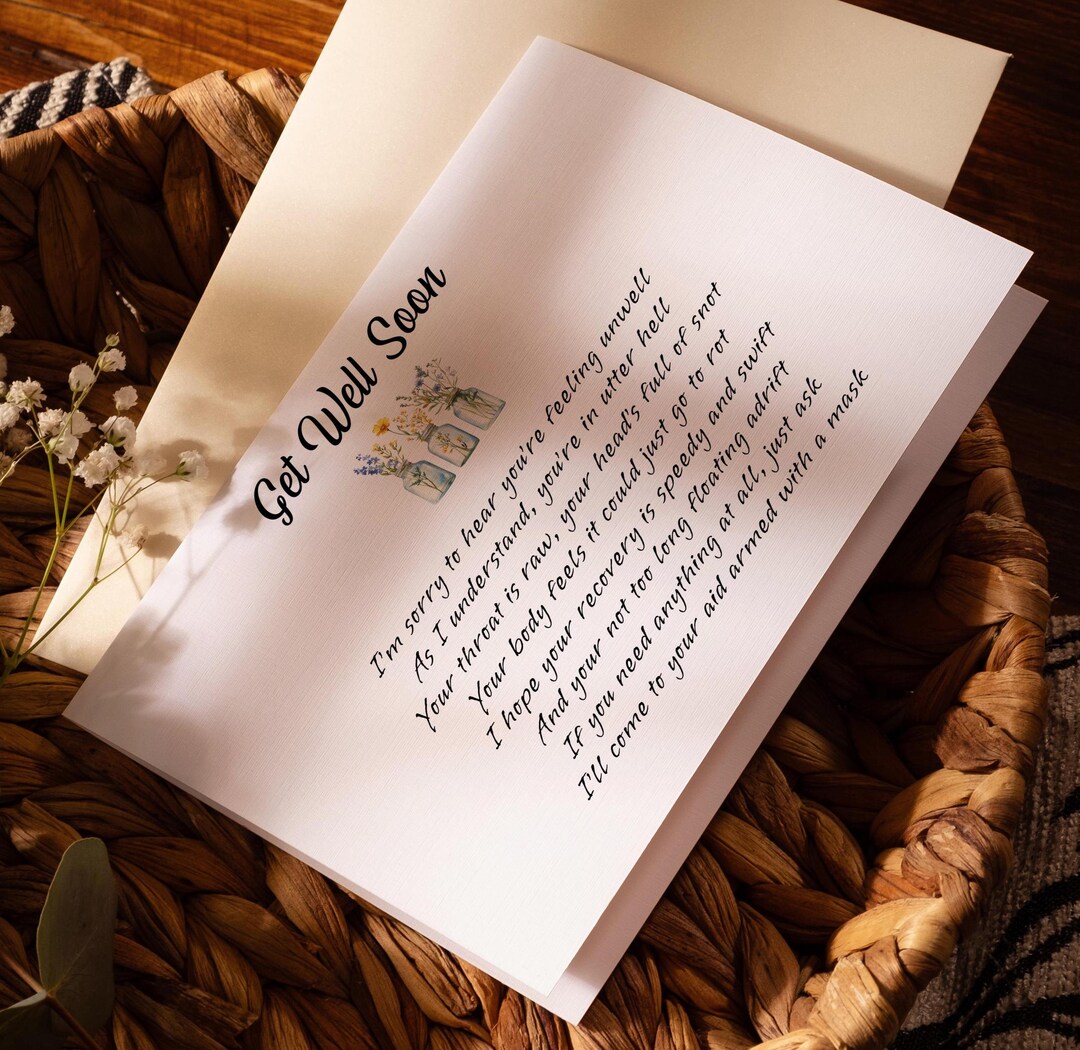 Get Well Soon
I'm sorry to hear you're feeling unwell
As I understand, you're in utter hell
Your throat is raw, your head's full of snot
Your body feels it could just go to rot
I hope your recovery is speedy and swift
And your not too long floating adrift
If you need anything at all, just ask
I'll come to your aid armed with a mask